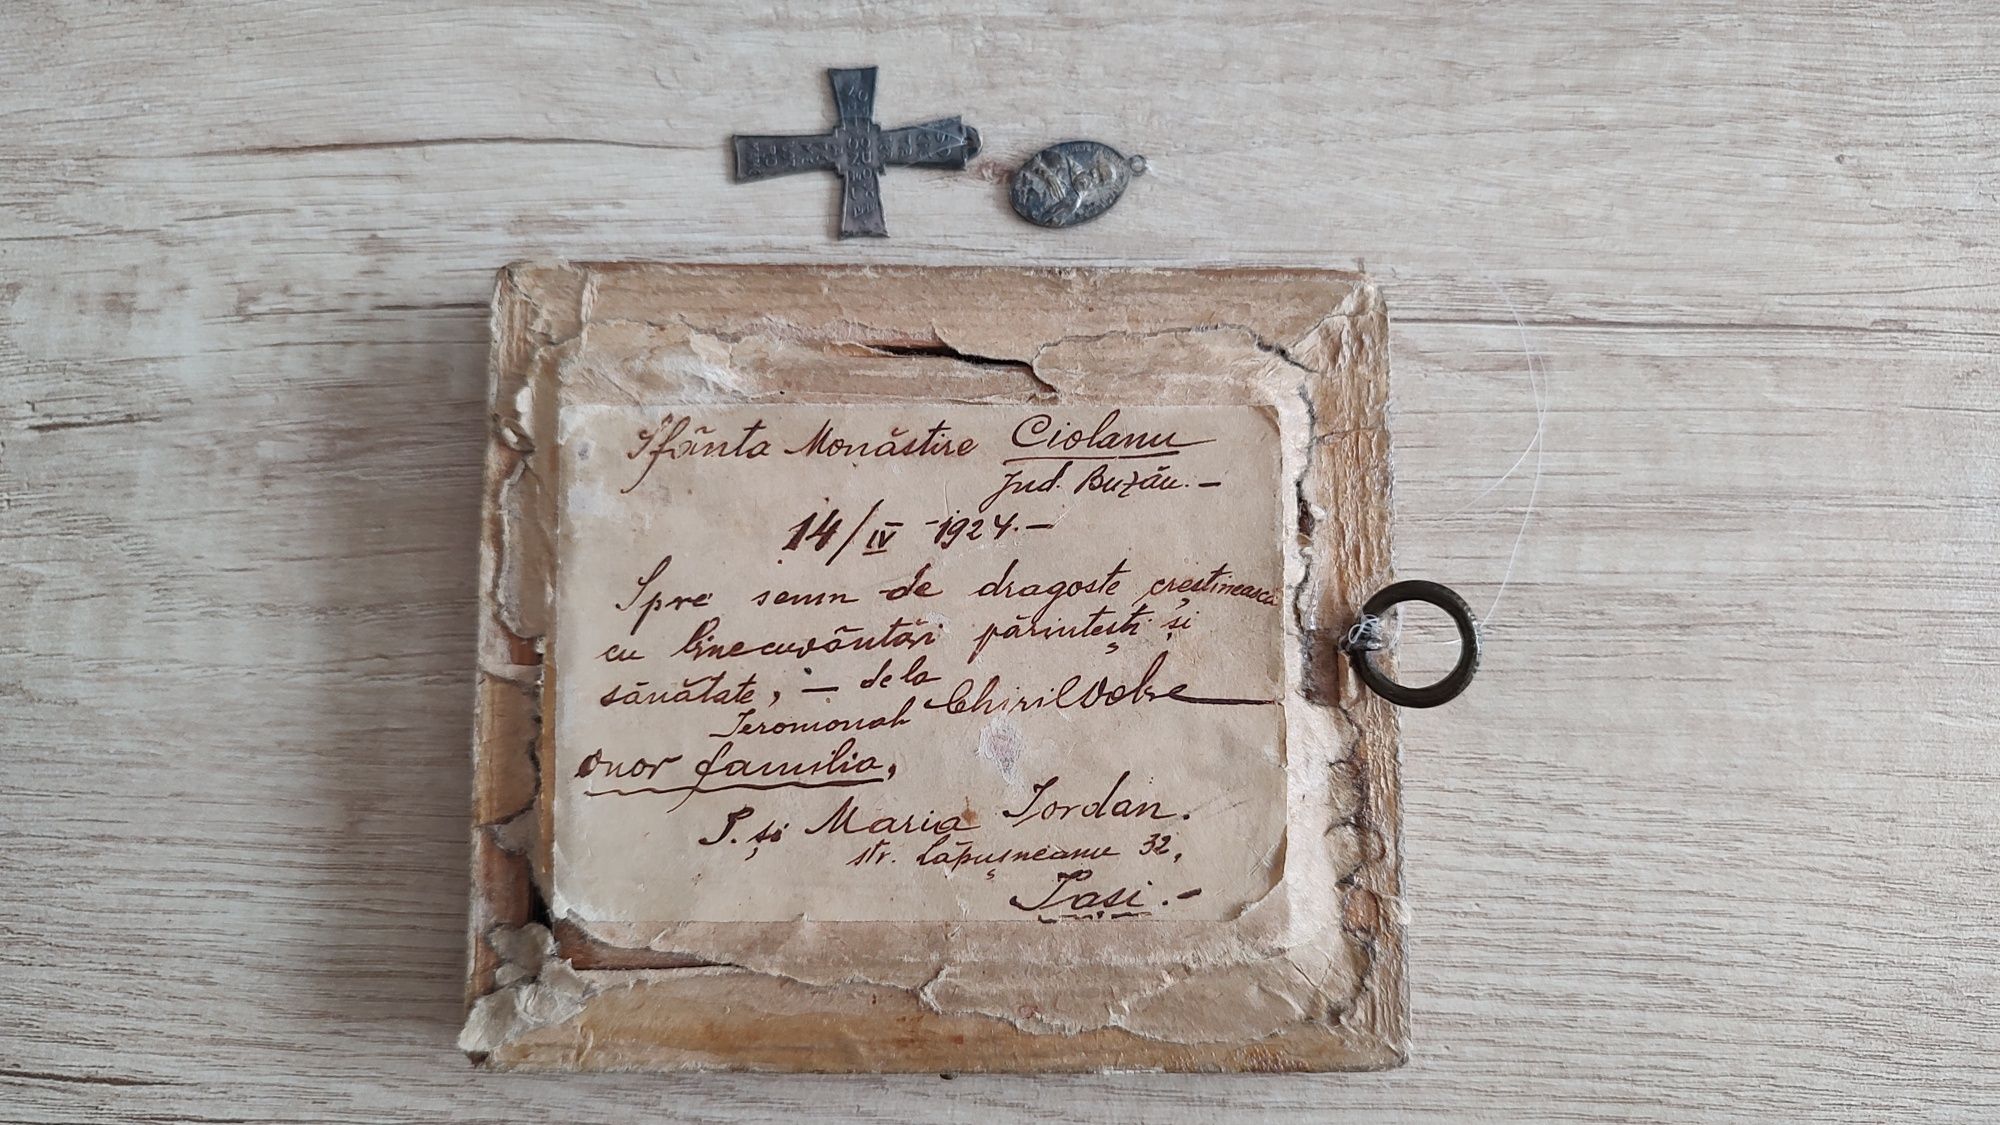 Sfânta Monăstire Ciolanu
Jud. Buzău. –
14/IV -1924. –
Spre semn de dragoste creștinească
cu binecuvântări părintești și
sănătate, – de la
Ieromonah Chiril Dobre
Onor familia,
P. și Maria Iordan.
str. Lăpușneanu 32,
Iași. –